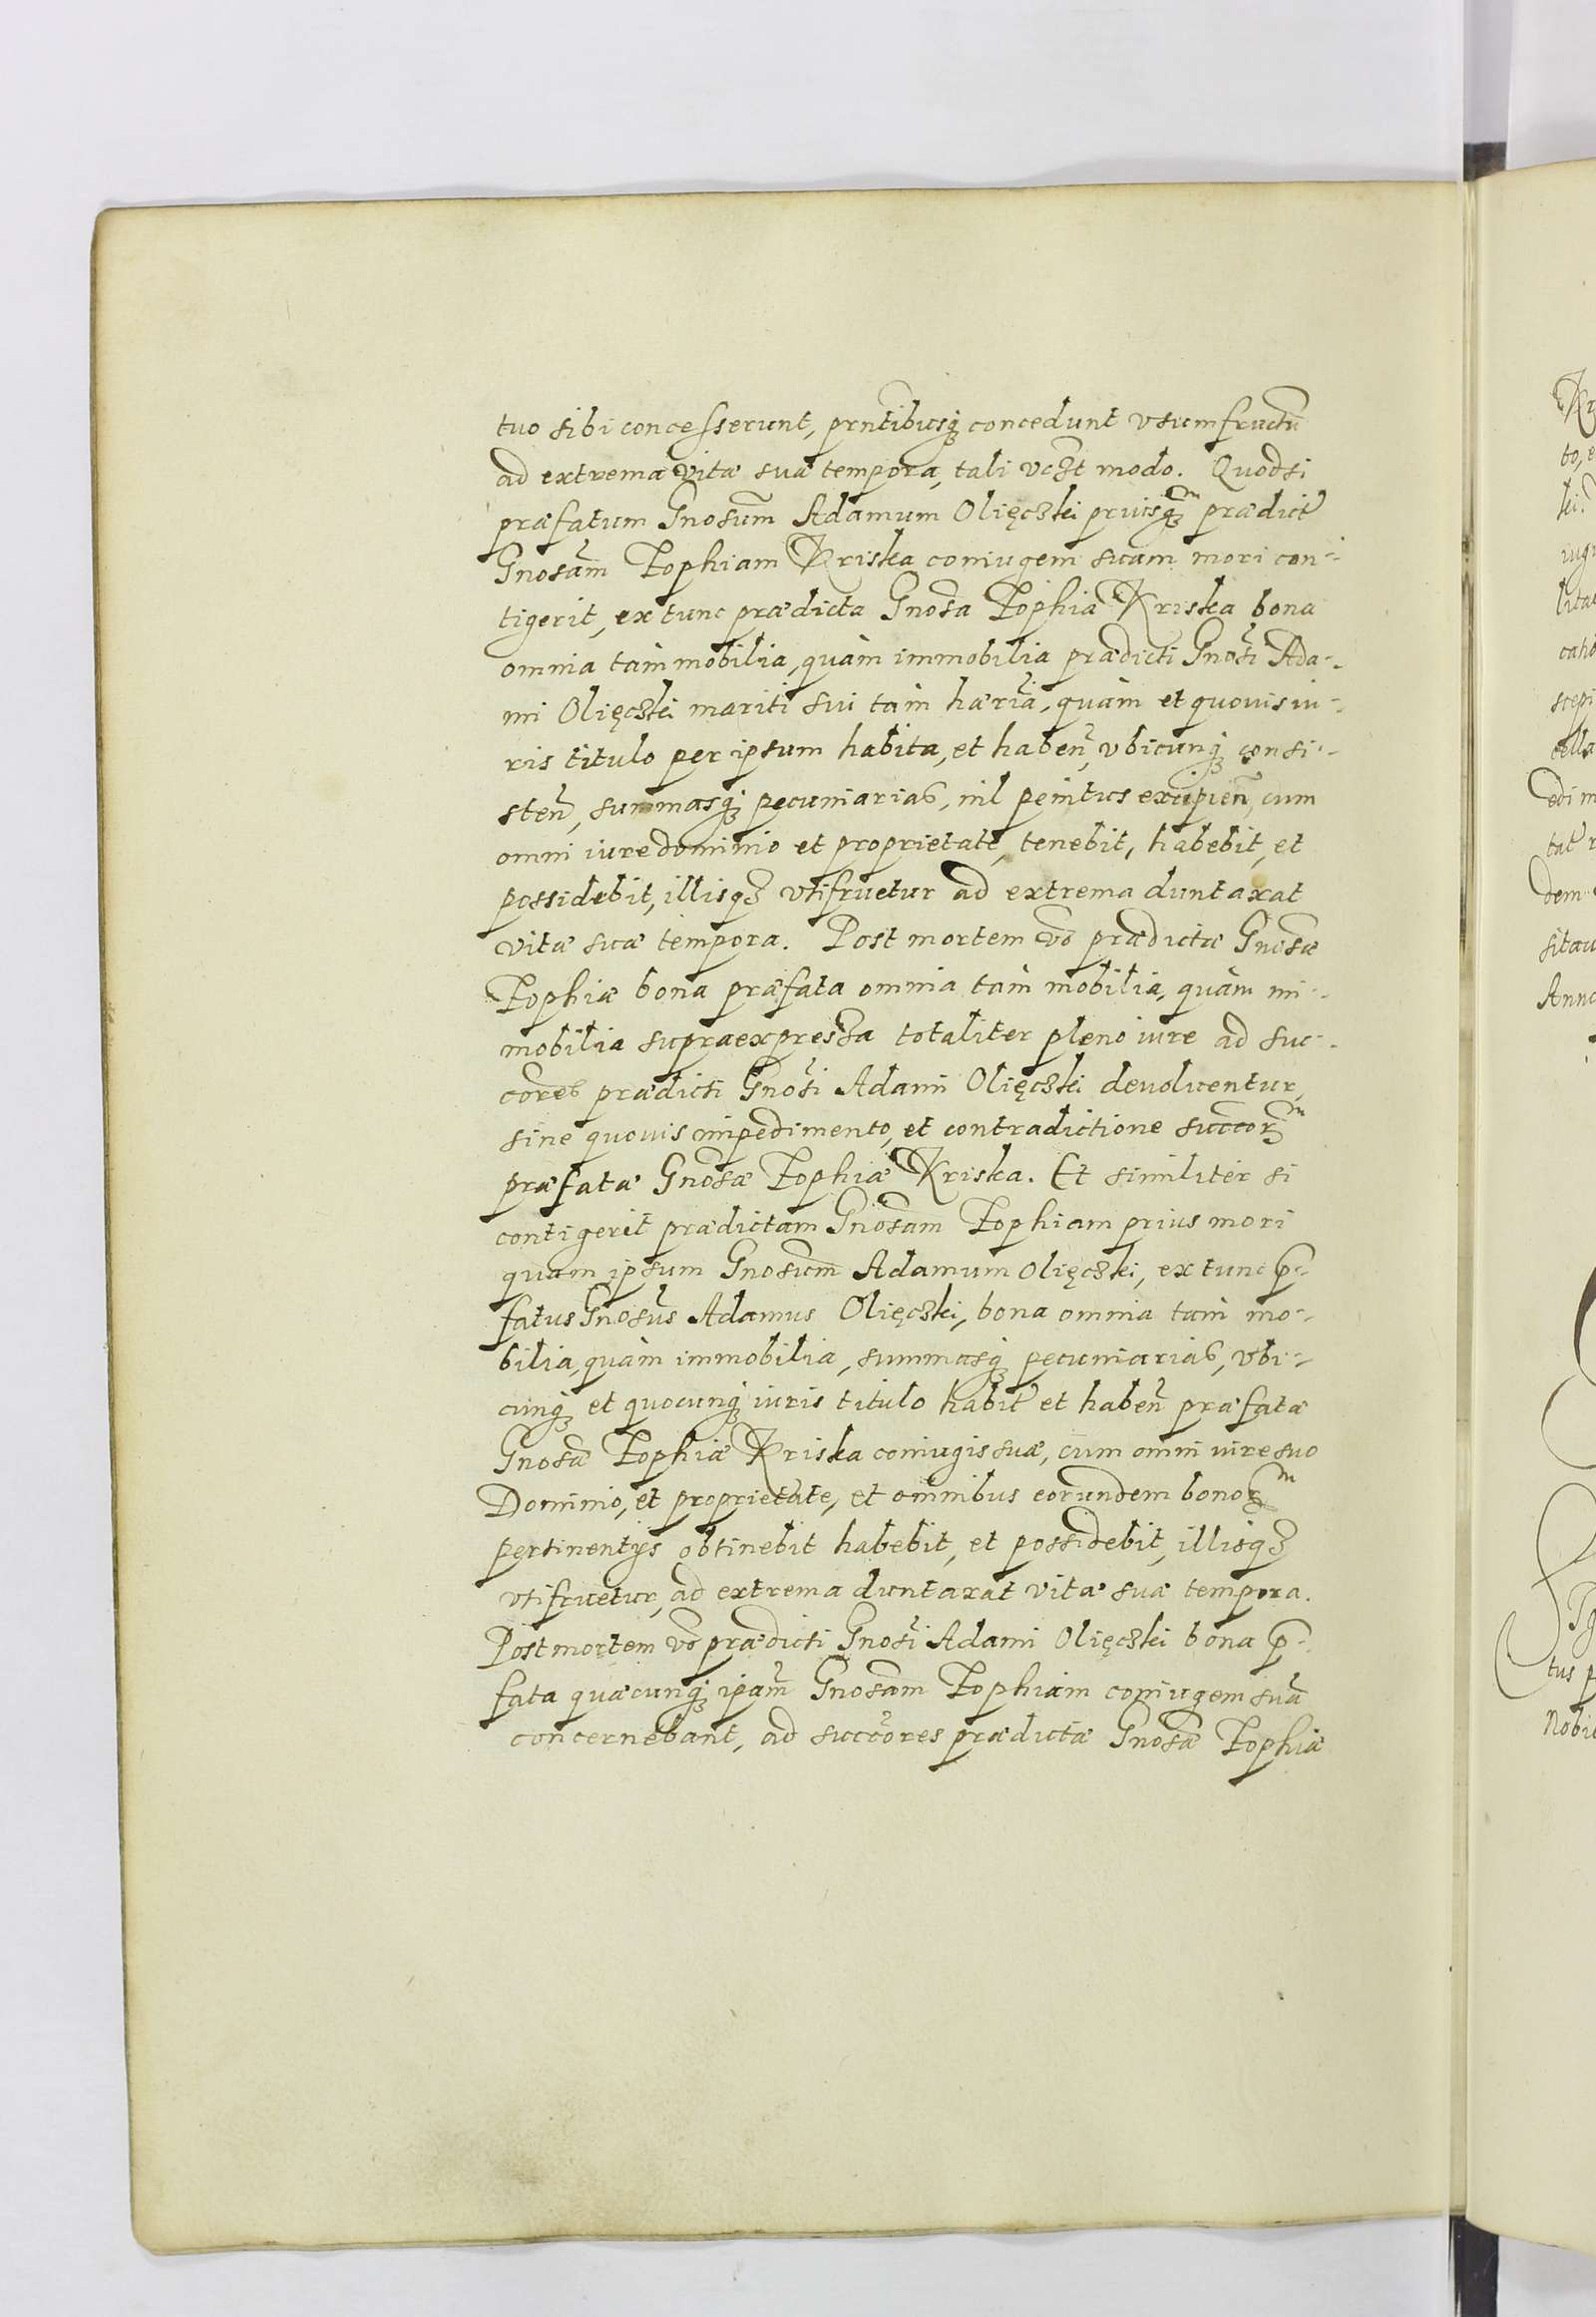 tuo sibi concesserunt, prntibusq; concedunt vsumfructū
ad extrema vitæ suæ tempora, tali vczt modo. Quodsi
præfatum Gnosum Adamum Olięczki priusq̃m prædict̃
Gnosam Zophiam Kriska coniugem suam mori con-
tigerit, ex tunc prædicta Gnosa Zophia Kriska bona
omnia tam mobilia, quàm immobilia prædicti Gnosi Ada-
mi Olięczki mariti sui tam hæria, quàm et quouis iu-
ris titulo per ipsum habita, et habeñ, vbicunq; consi-
steñ, summasq; pecuniarias, nil penitus excipieñ, cum
omni iure dominio et proprietate, tenebit, habebit, et
possidebit, illisq; vtifruetur ad extrema duntaxat
vitæ suæ tempora. Post mortem vo prædictæ Gnosæ
Zophiæ bona præfata omnia tam mobilia, quàm im-
mobilia supraexpressa totaliter pleno iure ad suc-
cores prædicti Gnosi Adami Olięczki deuoluentur,
sine quouis impedimento, et contradictione succorm
præfatæ Gnosæ Zophiæ Kriska. Et similiter si
contigerit prædictam Gnosam Zophiam prius mori
quam ipsum Gnosum Adamum Olięczki, ex tunc p̃-
fatus Gnosus Adamus Olięczki, bona omnia tam mo-
bilia, quàm immobilia, summasq; pecuniarias, vbi-
cunq; et quocunq; iuris titulo habit̃ et habeñ præfatæ
Gnosæ Zophiæ Kriska coniugis suæ, cum omni iure suo
Dominio, et proprietate, et omnibus eorundem bonorm
pertinentijs obtinebit habebit, et possidebit, illisq;
vtifruetur, ad extrema duntaxat vitæ suæ tempora.
Post mortem vo prædicti Gnosi Adami Olięczki bona p̃-
fata quæcunq; ipam Gnosam Zophiam coniugem suā
concernebant, ad succores prædictæ Gnosæ Zophiæ